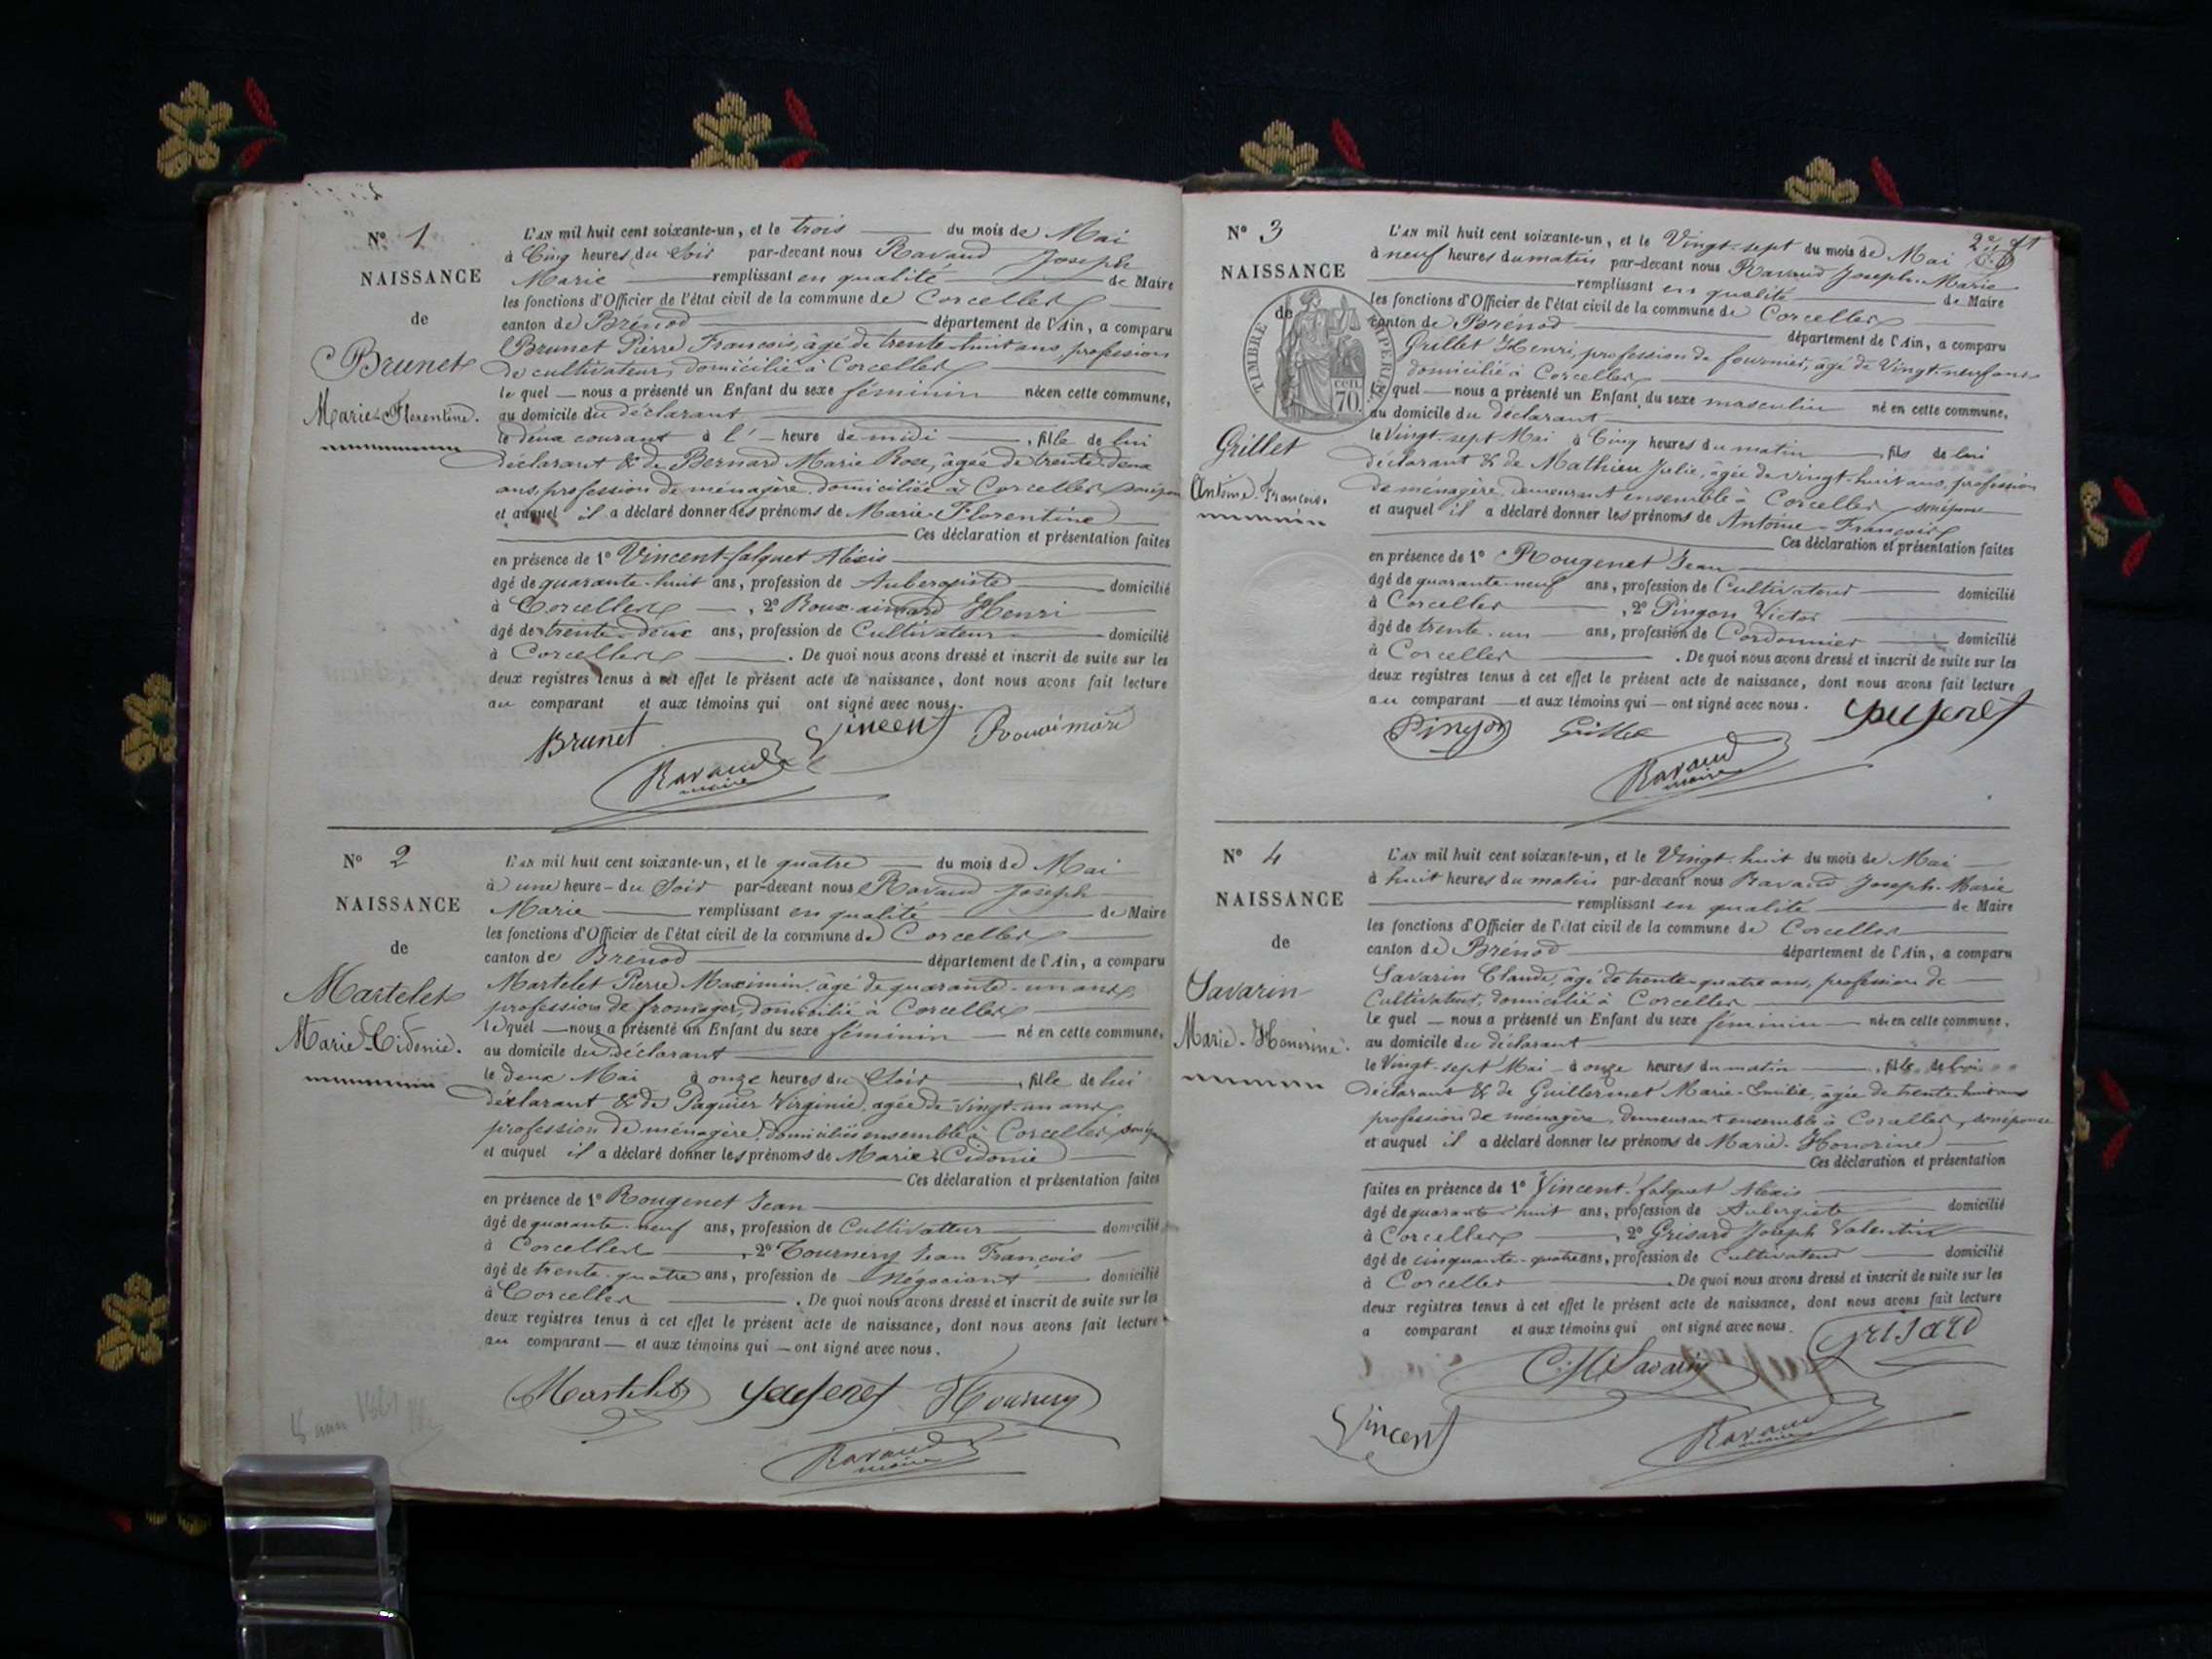 N° 1
NAISSANCE
de
Brunet
Marie-Florentine.
L'AN mil huit cent soixante-un, et le trois du mois de Mai
à Cinq heures du Soir par-devant nous Ravaud Joseph
Marie remplissant en qualité de Maire
les fonctions d'Officier de l'état civil de la commune de Corcelles
canton de Brénod département de l'Ain, a comparu
Brunet Pierre François, âgé de trente-huit ans, profession
de cultivateur, domicilié à Corcelles
le quel nous a présenté un Enfant du sexe féminin née en cette commune,
au domicile du déclarant
le deux courant à l' heure de midi , fille de lui
déclarant & de Bernard Marie Rose, âgée de trente-deux
ans, profession de ménagère, domiciliée à Corcelles
et auquel il a déclaré donner les prénoms de Marie-Florentine
Ces déclaration et présentation faites
en présence de 1° Vincent-falquet Alexis
âgé de quarante-huit ans, profession de Aubergiste domicilié
à Corcelles , 2° Roux-aimard Henri
âgé de trente-deux ans, profession de Cultivateur domicilié
à Corcelles . De quoi nous avons dressé et inscrit de suite sur les
deux registres tenus à cet effet le présent acte de naissance, dont nous avons fait lecture
au comparant et aux témoins qui ont signé avec nous.
Brunet Vincent
Ravaud
maire
N° 2
NAISSANCE
de
Martelet
Marie-Cidonie.
L'AN mil huit cent soixante-un, et le quatre du mois de Mai
à une heure du Soir par-devant nous Ravaud Joseph
Marie remplissant en qualité de Maire
les fonctions d'Officier de l'état civil de la commune de Corcelles
canton de Brénod département de l'Ain, a comparu
Martelet Pierre Maximin, âgé de quarante-un ans,
profession de fromager, domicilié à Corcelles
lequel nous a présenté un Enfant du sexe féminin né en cette commune,
au domicile du déclarant
le deux Mai à onze heures du Soir , fille de lui
déclarant & de Paquier Virginie, agée de vingt-un ans,
profession de ménagère, domiciliés ensemble à Corcelles
et auquel il a déclaré donner les prénoms de Marie-Cidonie
Ces déclaration et présentation faites
en présence de 1° Rougenet Jean
âgé de quarante-neuf ans, profession de Cultivateur domicilié
à Corcelles , 2° Tournery Jean François
âgé de trente-quatre ans, profession de Négociant domicilié
à Corcelles . De quoi nous avons dressé et inscrit de suite sur les
deux registres tenus à cet effet le présent acte de naissance, dont nous avons fait lecture
au comparant et aux témoins qui ont signé avec nous.
Martelet
Ravaud
maire
N° 3
NAISSANCE
de
TIMBRE IMPERIAL
cen.
70
Grillet
Antoine-François.
L'AN mil huit cent soixante-un, et le Vingt-sept du mois de Mai
à neuf heures du matin par-devant nous Ravaud Joseph-Marie
remplissant en qualité de Maire
les fonctions d'Officier de l'état civil de la commune de Corcelles
canton de Brénod département de l'Ain, a comparu
Grillet Henri, profession de fournier, âgé de Vingt-neuf ans
domicilié à Corcelles
le quel nous a présenté un Enfant du sexe masculin né en cette commune,
au domicile du déclarant
le Vingt-sept Mai à Cinq heures du matin , fils de lui
déclarant & de Mathieu Julie, âgée de vingt-huit ans, profession
de ménagère, demeurant ensemble à Corcelles, son épouse
et auquel il a déclaré donner les prénoms de Antoine-François
Ces déclaration et présentation faites
en présence de 1° Rougenet Jean
âgé de quarante-neuf ans, profession de Cultivateur domicilié
à Corcelles , 2° Pingon Victor
âgé de trente-un ans, profession de Cordonnier domicilié
à Corcelles . De quoi nous avons dressé et inscrit de suite sur les
deux registres tenus à cet effet le présent acte de naissance, dont nous avons fait lecture
au comparant et aux témoins qui ont signé avec nous.
Pingon Grillet
Ravaud
maire
N° 4
NAISSANCE
de
Savarin
Marie-Honorine.
L'AN mil huit cent soixante-un, et le Vingt-huit du mois de Mai
à huit heures du matin par-devant nous Ravaud Joseph-Marie
remplissant en qualité de Maire
les fonctions d'Officier de l'état civil de la commune de Corcelles
canton de Brénod département de l'Ain, a comparu
Savarin Claude, âgé de trente-quatre ans, profession de
Cultivateur, domicilié à Corcelles
le quel nous a présenté un Enfant du sexe féminin née en cette commune,
au domicile du déclarant
le Vingt-sept Mai à onze heures du matin , fille de lui
déclarant & de Guillermet Marie-Emilie, âgée de trente-huit ans
profession de ménagère, demeurant ensemble à Corcelles, son épouse
et auquel il a déclaré donner les prénoms de Marie-Honorine
Ces déclaration et présentation
faites en présence de 1° Vincent-falquet Alexis
âgé de quarante-huit ans, profession de Aubergiste domicilié
à Corcelles , 2° Grisard Joseph Valentin
âgé de cinquante-quatre ans, profession de Cultivateur domicilié
à Corcelles . De quoi nous avons dressé et inscrit de suite sur les
deux registres tenus à cet effet le présent acte de naissance, dont nous avons fait lecture
a comparant et aux témoins qui ont signé avec nous.
Grisard
Savarin
Vincent
Ravaud
maire